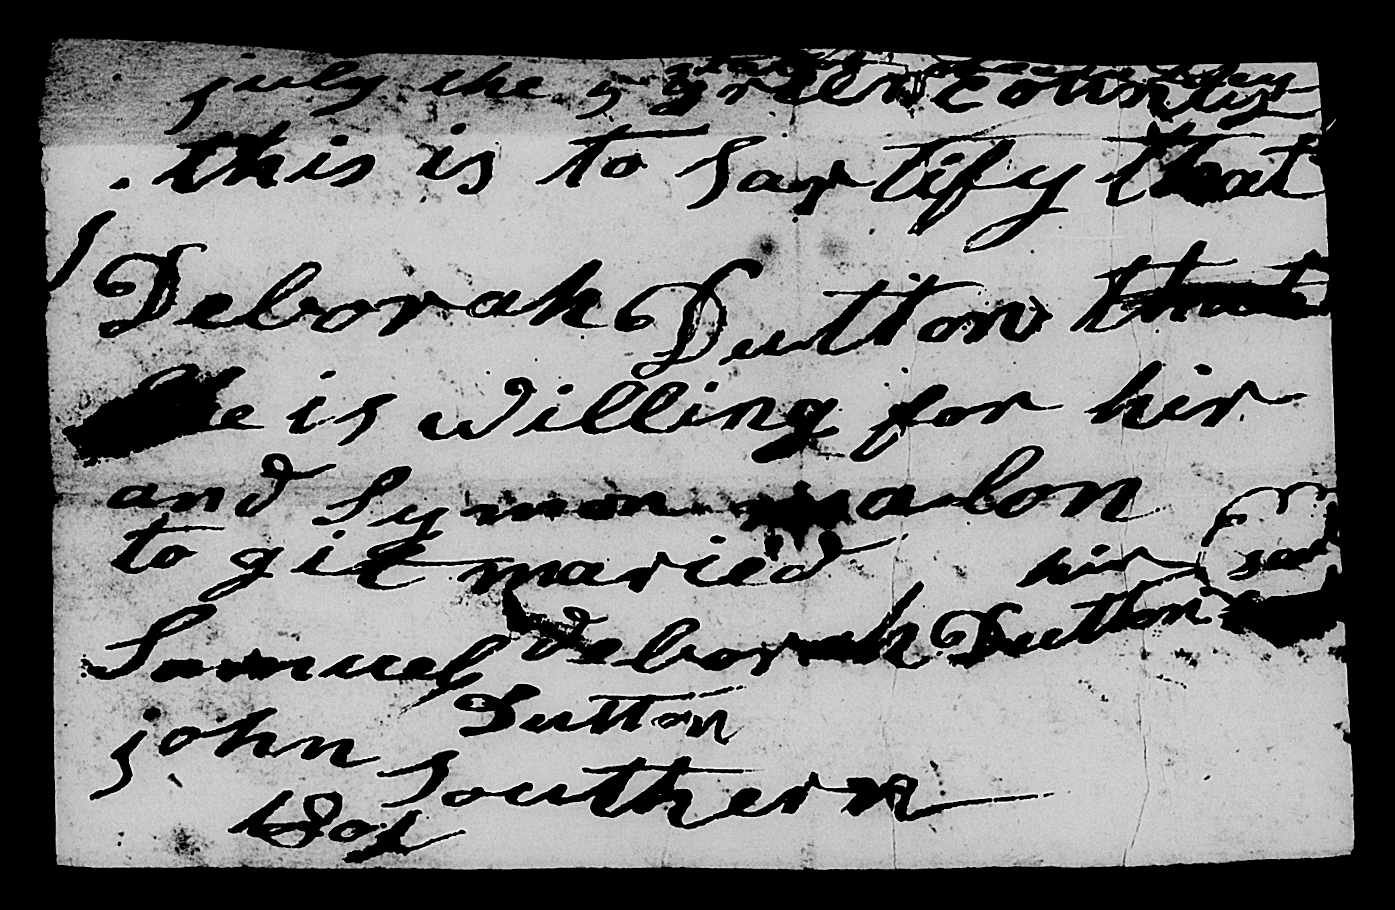 july the 5 green county
this is to Sartify that
Deborah Dutton that
he is willing for hir
and Symon malon
to git maried hir
Samuel Deborah Dutton
Dutton
john Southern
1801